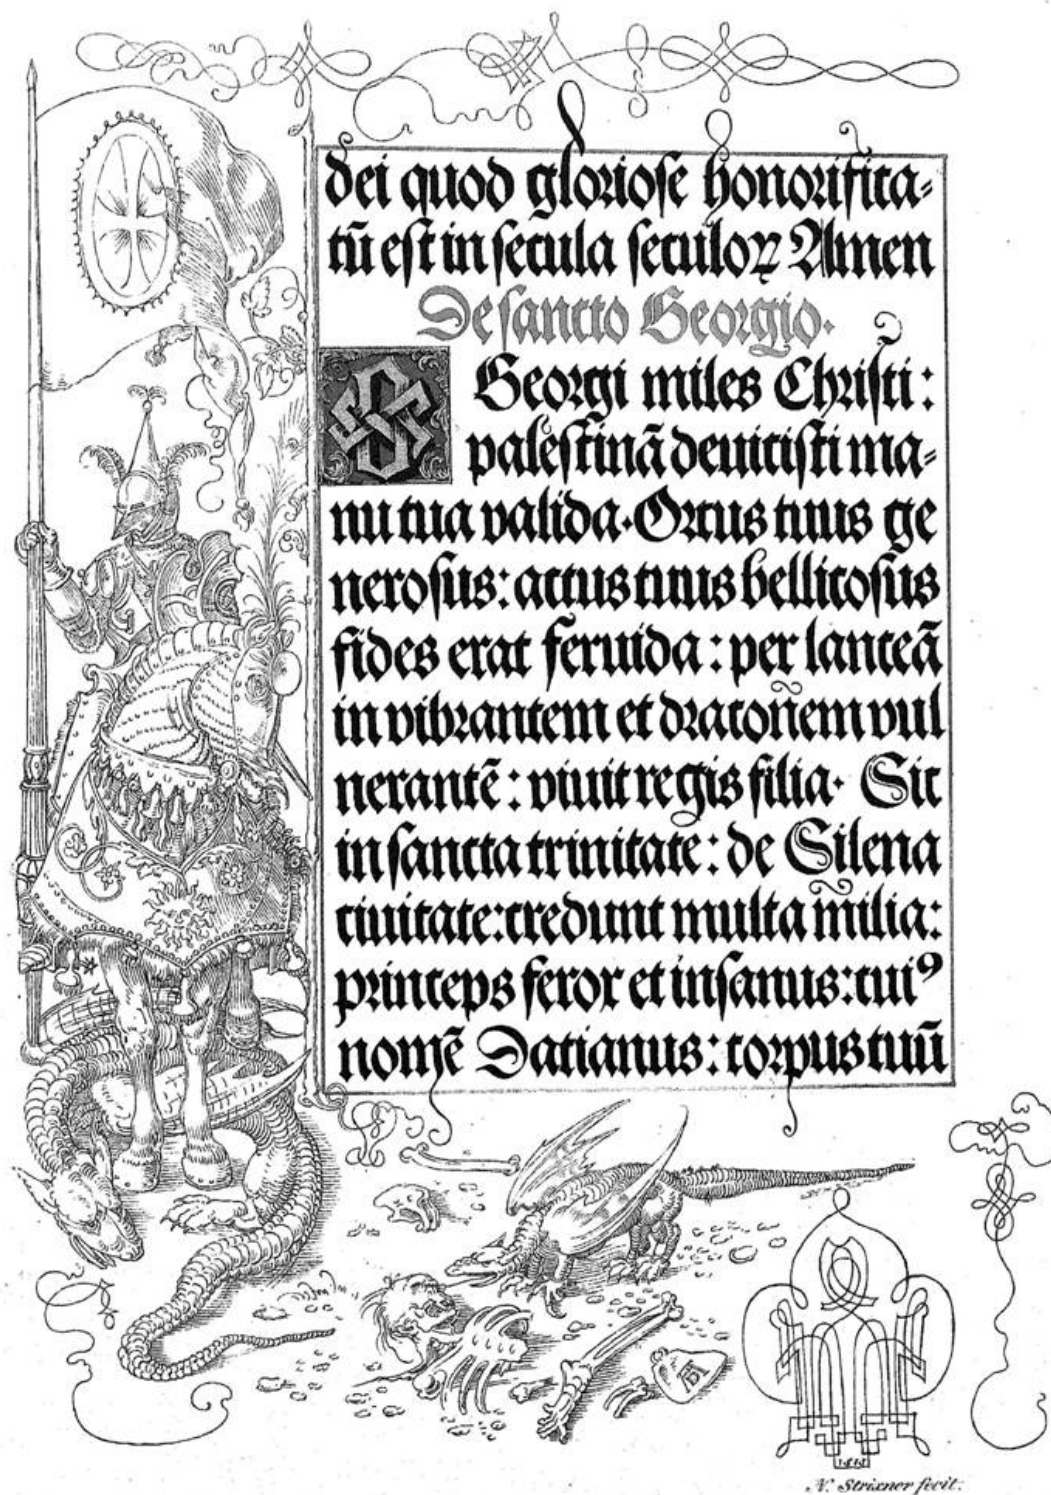 dei quod gloriose honorifica-
tū est in secula seculoꝝ Amen
De sancto Georgio.
Georgi miles Christi:
palestinā deuicisti ma-
nu tua valida. Ortus tuus ge
nerosus: actus tuus bellicosus
fides erat feruida: per lanceā
in vibrantem et draconem vul
nerantē: viuit regis filia. Sic
in sancta trinitate: de Silena
ciuitate: credunt multa milia:
princeps ferox et insanus: cuiꝰ
nomē Datianus: corpus tuū
AD
1515
N. Strixner fecit.